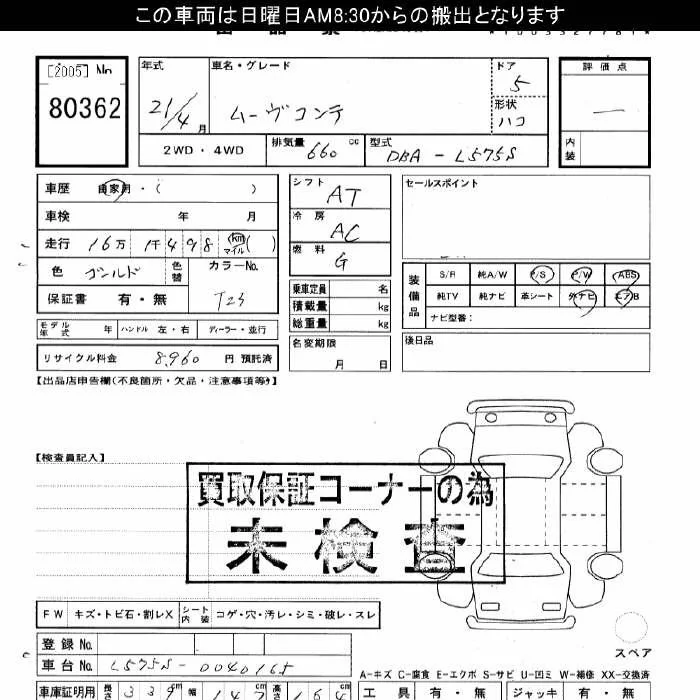 この車両は日曜日AM8:30からの搬出となります
[2005] No
80362
年式 21/4月
車名・グレード ムーヴコンテ
ドア 5
形状 ハコ
評価点 —
内装
2WD・4WD
排気量 660 cc
型式 DBA-L575S
車歴 自家用・( )
車検 年 月
走行 16万 1千498 km マイル ( )
色 ゴールド 色替
カラーNo. T23
保証書 有・無
モデル年式 年 ハンドル 左・右 ディーラー・並行
リサイクル料金 8,960 円 預託済
シフト AT
冷房 AC
燃料 G
乗車定員 名
積載量 kg
総重量 kg
名変期限 月 日
セールスポイント
装備品
S/R 純A/W P/S P/W ABS
純TV 純ナビ 革シート 外ナビ エアB
ナビ型番:
後日品
【出品店申告欄(不良箇所・欠品・注意事項等)】
【検査員記入】
買取保証コーナーの為
未検査
FW キズ・トビ石・割レX シート内装 コゲ・穴・汚レ・シミ・破レ・スレ
登録 No.
車台 No. L575S-0040165
スペア
A-キズ C-腐食 E-エクボ S-サビ U-凹ミ W-補修 XX-交換済
車庫証明用 長さ 339cm 幅 147 高さ 164
工具 有・無 ジャッキ 有・無